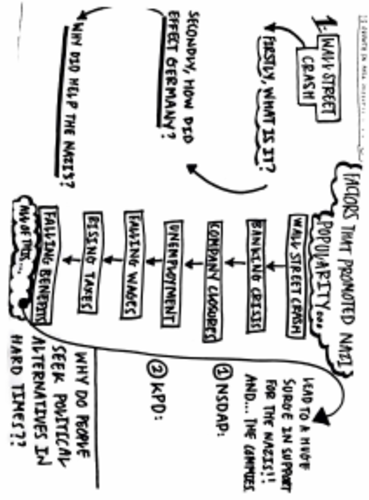 FACTORS THAT PROMOTED NAZI
POPULARITY...
1. WALL STREET
CRASH
FIRSTLY, WHAT IS IT?
SECONDLY, HOW DID
EFFECT GERMANY?
WHY DID HELP THE NAZIS?
WALL STREET CRASH
BANKING CRISIS
COMPANY CLOSURES
UNEMPLOYMENT
FALLING WAGES
RISING TAXES
FALLING BENEFITS
ALL OF THIS...
LEAD TO A HUGE
SURGE IN SUPPORT
FOR THE NAZIS!!
AND... THE COMMIES
1 NSDAP:
2 KPD:
WHY DO PEOPLE
SEEK POLITICAL
ALTERNATIVES IN
HARD TIMES??